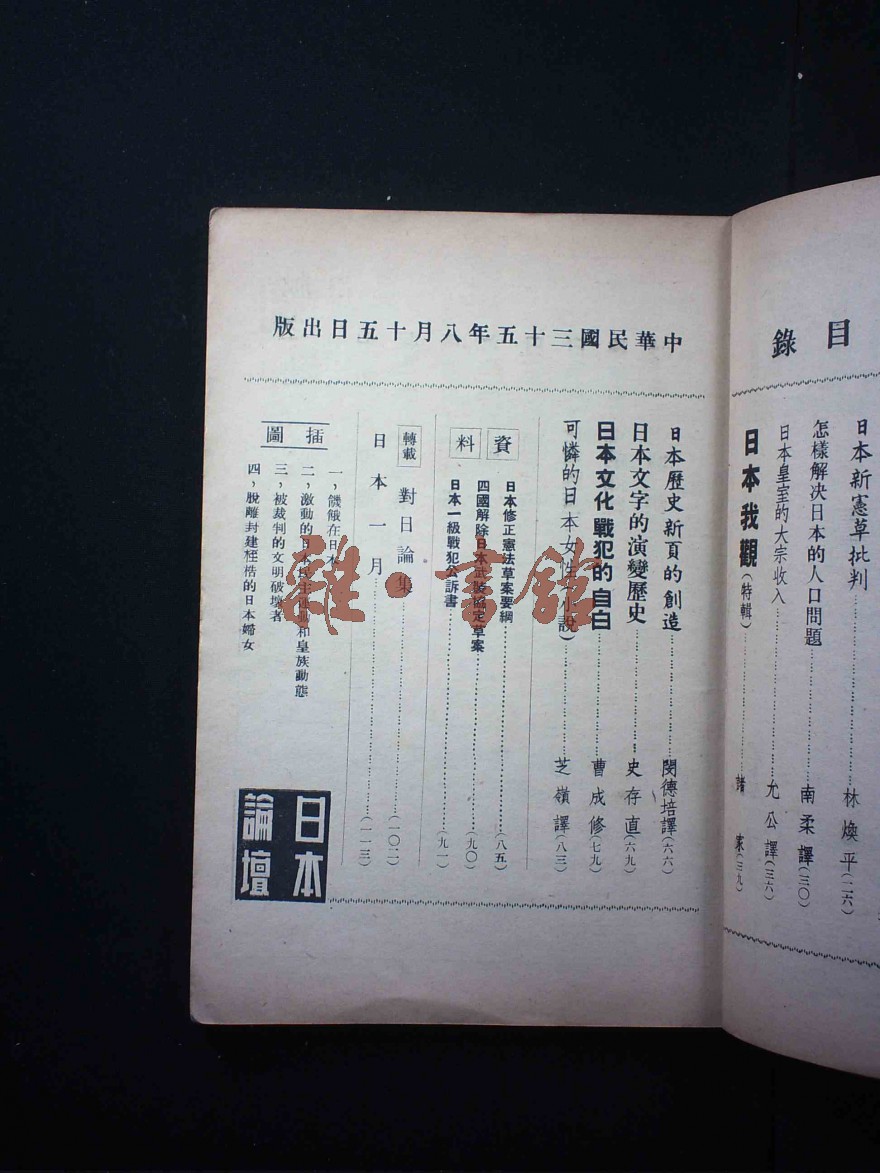 目錄
日本新憲草批判……林煥平(二六)
怎樣解決日本的人口問題……南柔譯(三〇)
日本皇室的大宗收入……尤公譯(三六)
日本我觀(特輯)……諸家(三九)
中華民國三十五年八月十五日出版
日本歷史新頁的創造……閔德培譯(六六)
日本文字的演變歷史……史存直(六九)
日本文化戰犯的自白……曹成修(七九)
可憐的日本女性(小說)……芝嶺譯(八三)
資料
日本修正憲法草案要綱……(八五)
四國解除日本武裝協定草案……(九〇)
日本一級戰犯公訴書……(九一)
轉載 對日論集……(一〇二)
日本一月……(一一三)
插圖
一，饑餓在日本
二，激動的日本民主運動和皇族動態
三，被裁判的文明破壞者
四，脫離封建桎梏的日本婦女
日本論壇
雜·書館